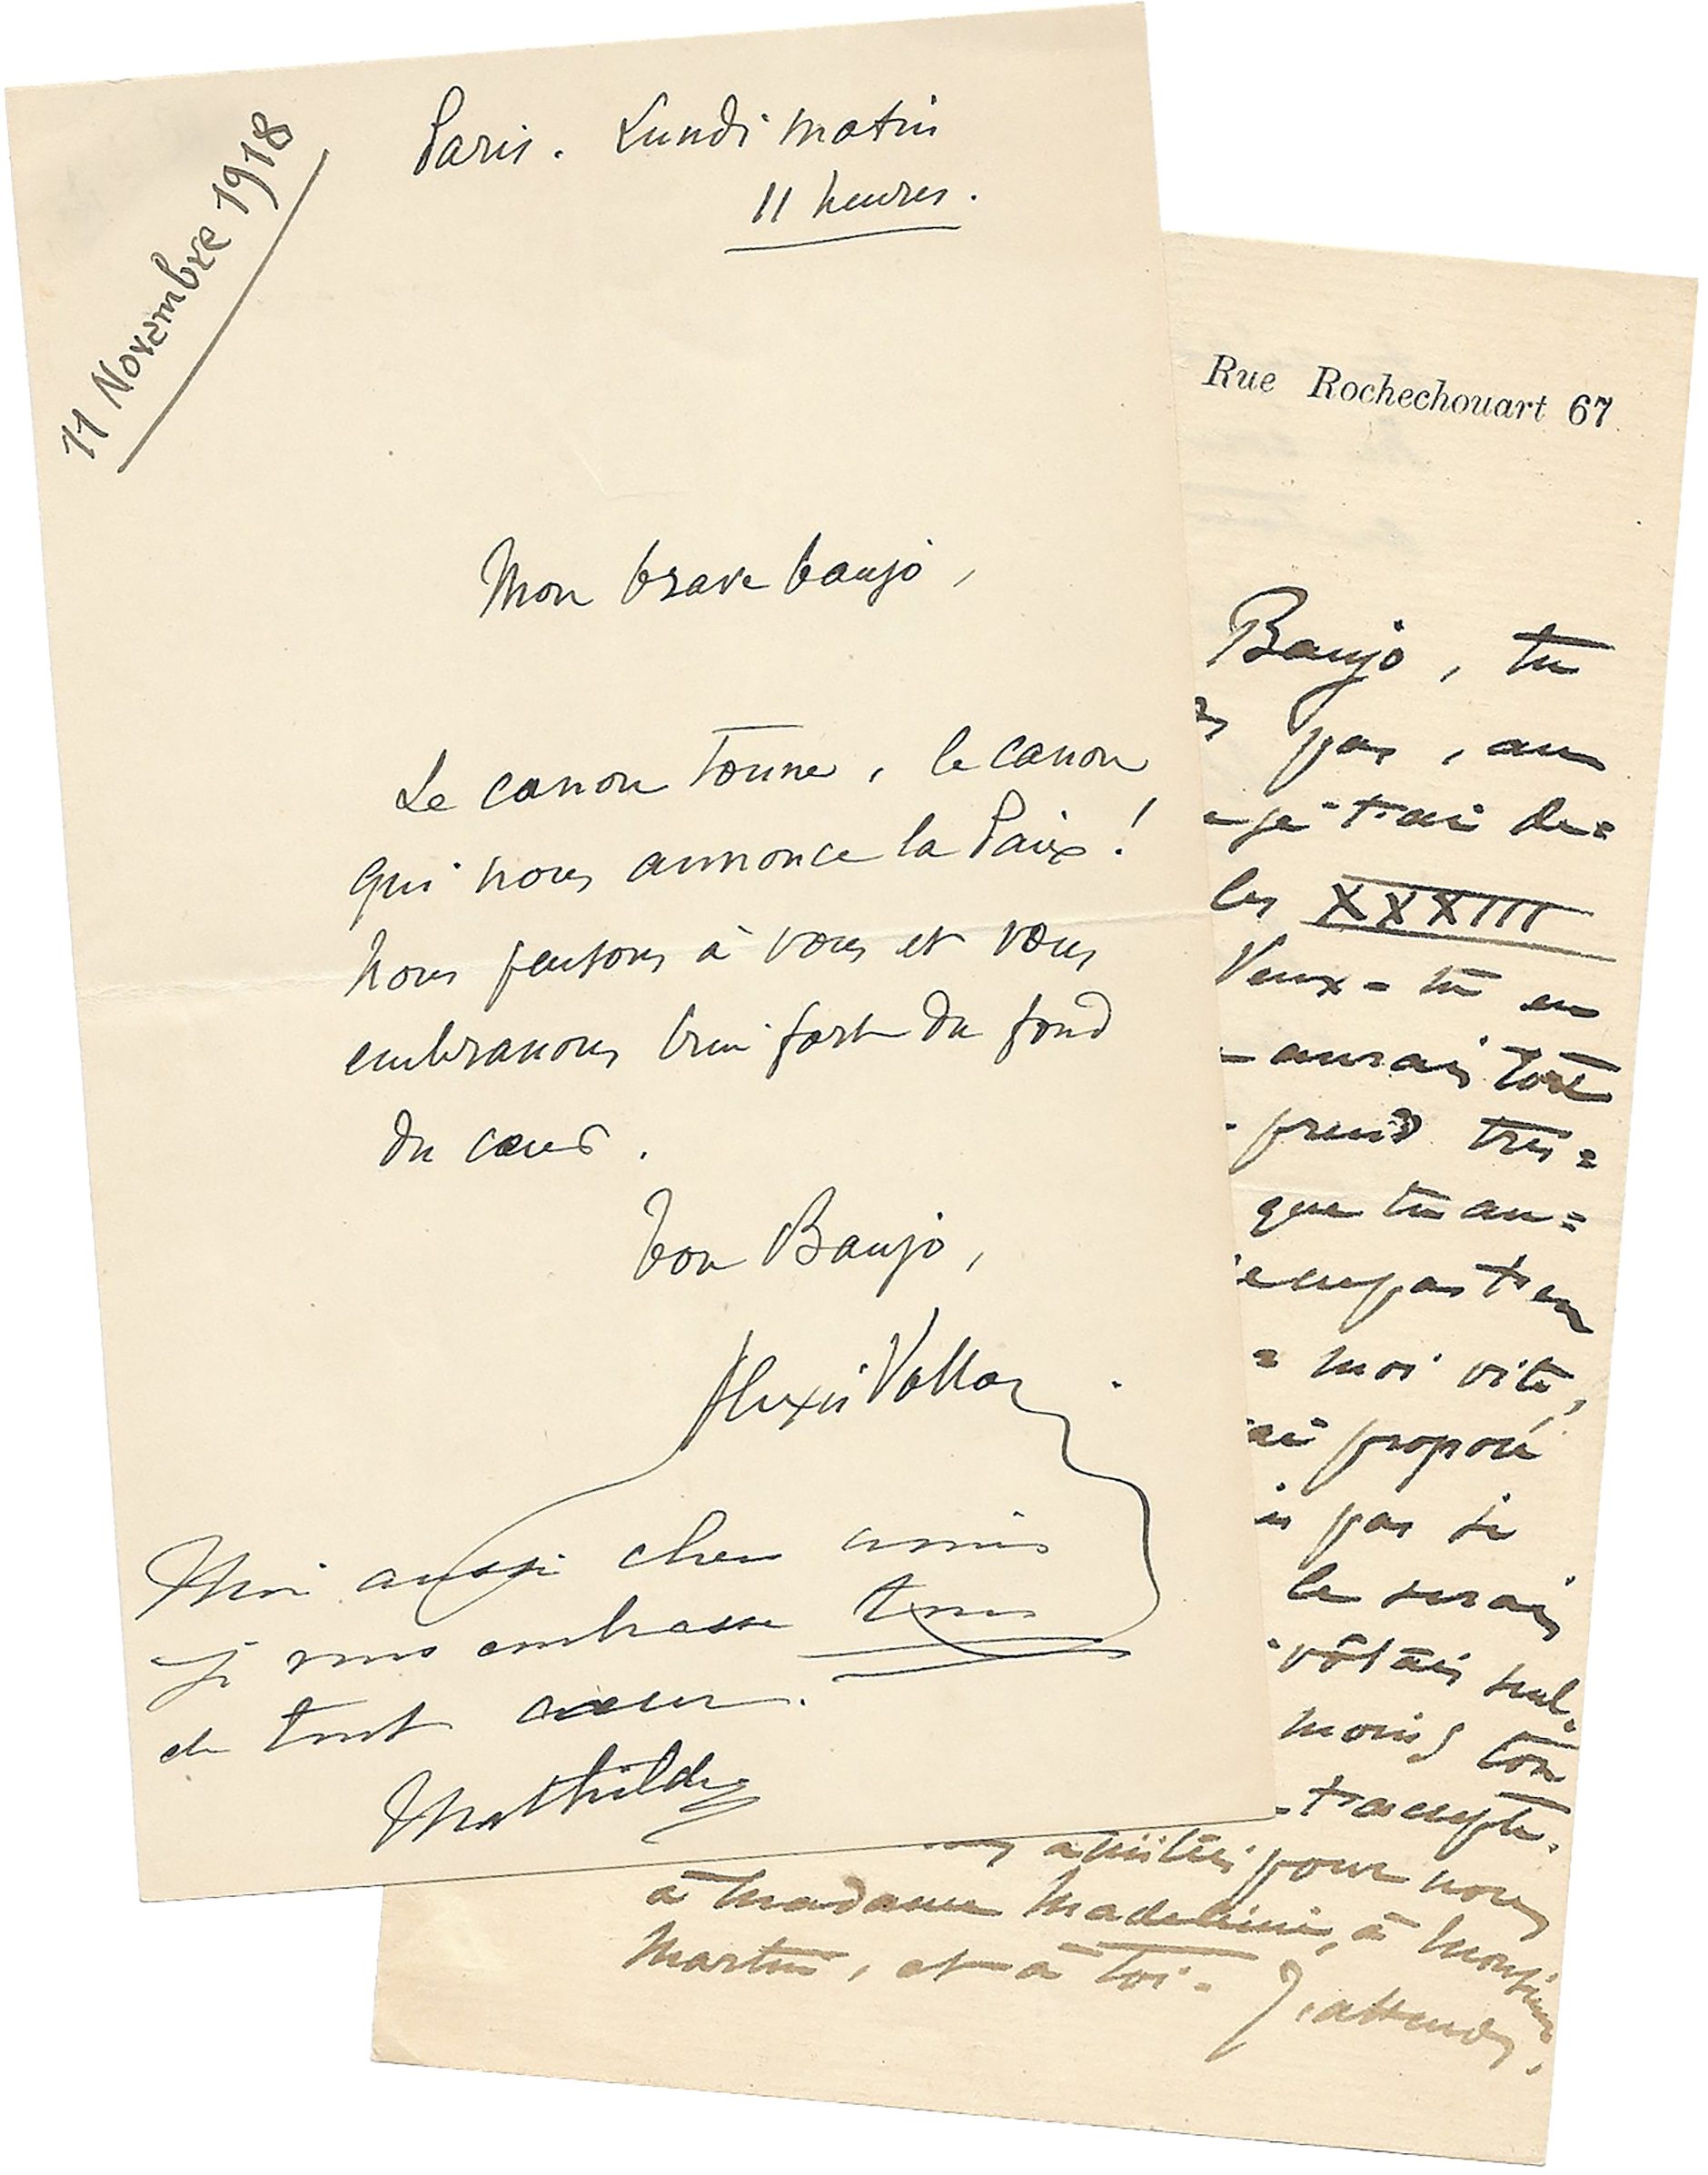 11 Novembre 1918
Paris. Lundi matin
11 heures.
Mon brave banjo,
Le canon tonne, le canon
qui nous annonce la Paix!
Nous pensons à vous et vous
embrassons bien fort du fond
du cœur.
Ton Banjo,
Alexis Vollon
Moi aussi chers amis
je vous embrasse tous
de tout cœur.
Mathilde
Rue Rochechouart 67
Banjo, tu
pas, au
je t'ai de=
les XXXIII
Veux-tu en
aurais tort
prend très=
que tu au=
pas t'en
= moi vite,
ai proposé
pas si
le serais
moins ton
t'accepte.
amitiés pour nous
à Madame Madeleine, à Monsieur
Martin, et à toi. J'attends.